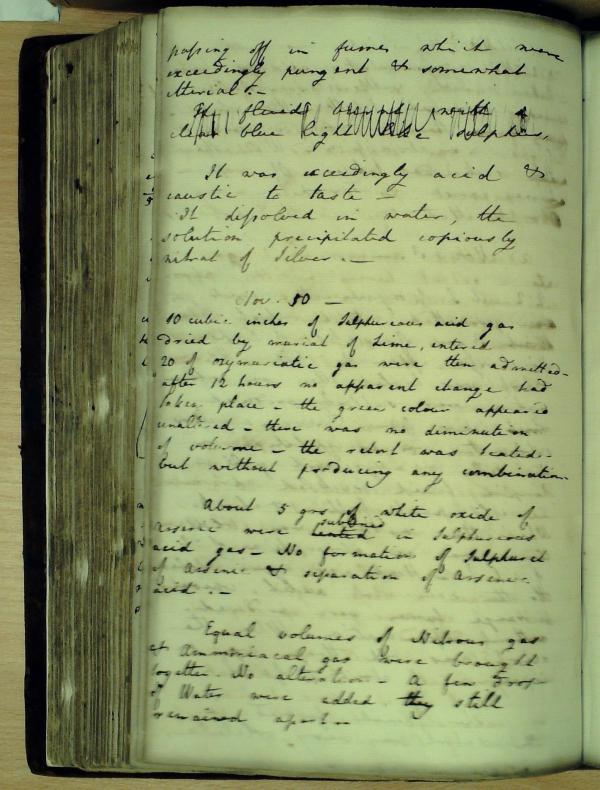 passing off in fumes which were
exceedingly pungent & somewhat
etherial. -
It
clear blue light like sulphur,
It was exceedingly acid &
caustic to taste -
It dissolved in water, the
solution precipitated copiously
nitrat of Silver. -
Nov. 30 -
10 cubic inches of Sulphureous acid gas
dried by muriat of Lime, entered
20 of oxymuriatic gas were then admitted -
after 12 hours no apparent change had
taken place - the green colour appeared
unaltered - there was no diminution
of volume - the retort was heated -
but without producing any combination -
About 5 grs of white oxide of
Arsenic were heated sublimed in Sulphureous
acid gas - No formation of Sulphuret
of Arsenic & separation of Arsenic
acid. -
Equal volumes of Nitrous gas
et Ammoniacal gas were brought
together. No alteration - A few Drops
of Water were added they still
remained apart -